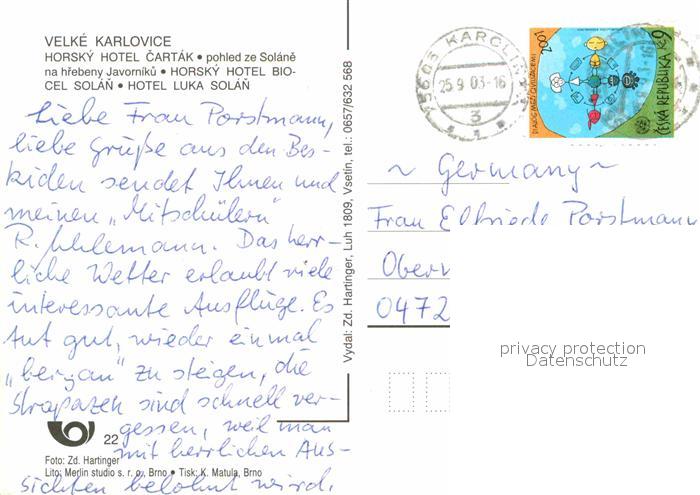 VELKÉ KARLOVICE
HORSKÝ HOTEL ČARTÁK • pohled ze Soláně
na hřebeny Javorníků • HORSKÝ HOTEL BIO-
CEL SOLÁŇ • HOTEL LUKA SOLÁŇ
Liebe Frau Porstmann,
liebe Grüße aus den Bes-
kiden sendet Ihnen und
meinen „Mitschülern"
R. Uhlemann. Das herr-
liche Wetter erlaubt viele
interessante Ausflüge. Es
tut gut, wieder einmal
„bergan" zu steigen, die
Strapazen sind schnell ver-
gessen, weil man
mit herrlichen Aus-
sichten belohnt wird.
22
Foto: Zd. Hartinger
Lito: Merlin studio s. r. o., Brno • Tisk: K. Matula, Brno
Vydal: Zd. Hartinger, Luh 1809, Vsetín, tel.: 0657/632 568
756 05 KAROLIN
25.9.03-16
3
2001
DIALOG MEZI CIVILIZACEMI
ČESKÁ REPUBLIKA Kč 9
~ Germany ~
Frau Elfriede Porstmann
Oberv
0472
privacy protection
Datenschutz